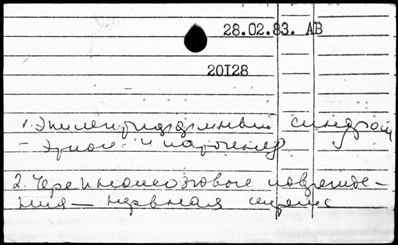 28.02.83. АВ
20128
1. Эпилептиформный синдром
- этиол. и патогенез
2. Черепномозговые повреждения - нервная